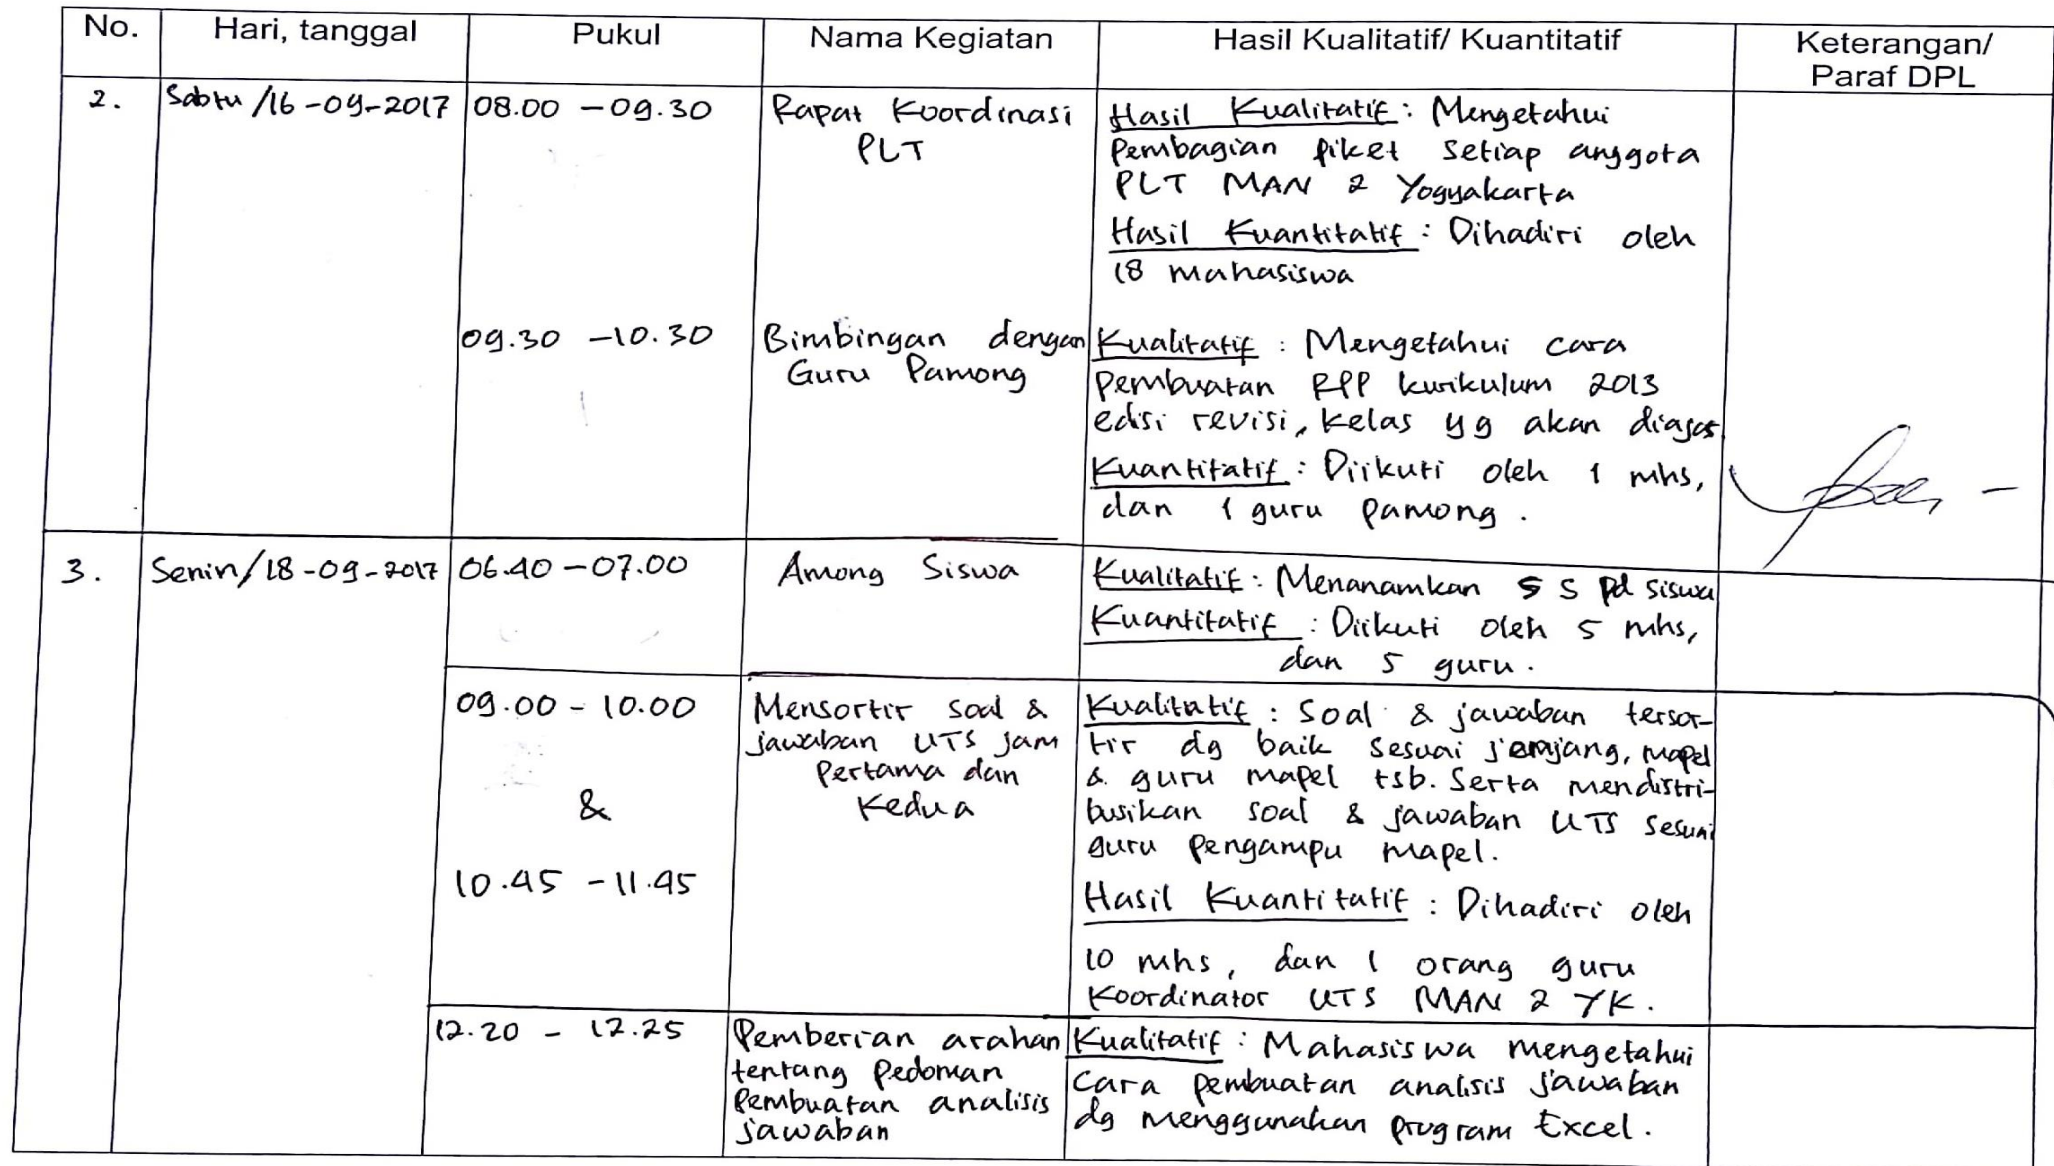 No. Hari, tanggal Pukul Nama Kegiatan Hasil Kualitatif/ Kuantitatif Keterangan/
Paraf DPL
2. Sabtu /16-09-2017 08.00 - 09.30 Rapat Koordinasi
PLT
Hasil Kualitatif : Mengetahui
Pembagian piket setiap anggota
PLT MAN 2 Yogyakarta
Hasil Kuantitatif : Dihadiri oleh
18 mahasiswa
09.30 - 10.30 Bimbingan dengan
Guru Pamong
Kualitatif : Mengetahui cara
pembuatan RPP kurikulum 2013
edisi revisi, kelas yg akan diajar
Kuantitatif : Diikuti oleh 1 mhs,
dan 1 guru pamong.
3. Senin/18-09-2017 06.40 - 07.00 Among Siswa
Kualitatif : Menanamkan 5 S pd siswa
Kuantitatif : Diikuti oleh 5 mhs,
dan 5 guru.
09.00 - 10.00
&
10.45 - 11.45
Mensortir soal &
jawaban UTS jam
Pertama dan
Kedua
Kualitatif : Soal & jawaban tersor-
tir dg baik sesuai jenjang, mapel
& guru mapel tsb. Serta mendistri-
busikan soal & jawaban UTS sesuai
guru pengampu mapel.
Hasil Kuantitatif : Dihadiri oleh
10 mhs, dan 1 orang guru
Koordinator UTS MAN 2 YK.
12.20 - 12.25
Pemberian arahan
tentang Pedoman
Pembuatan analisis
jawaban
Kualitatif : Mahasiswa mengetahui
cara pembuatan analisis jawaban
dg menggunakan program Excel.